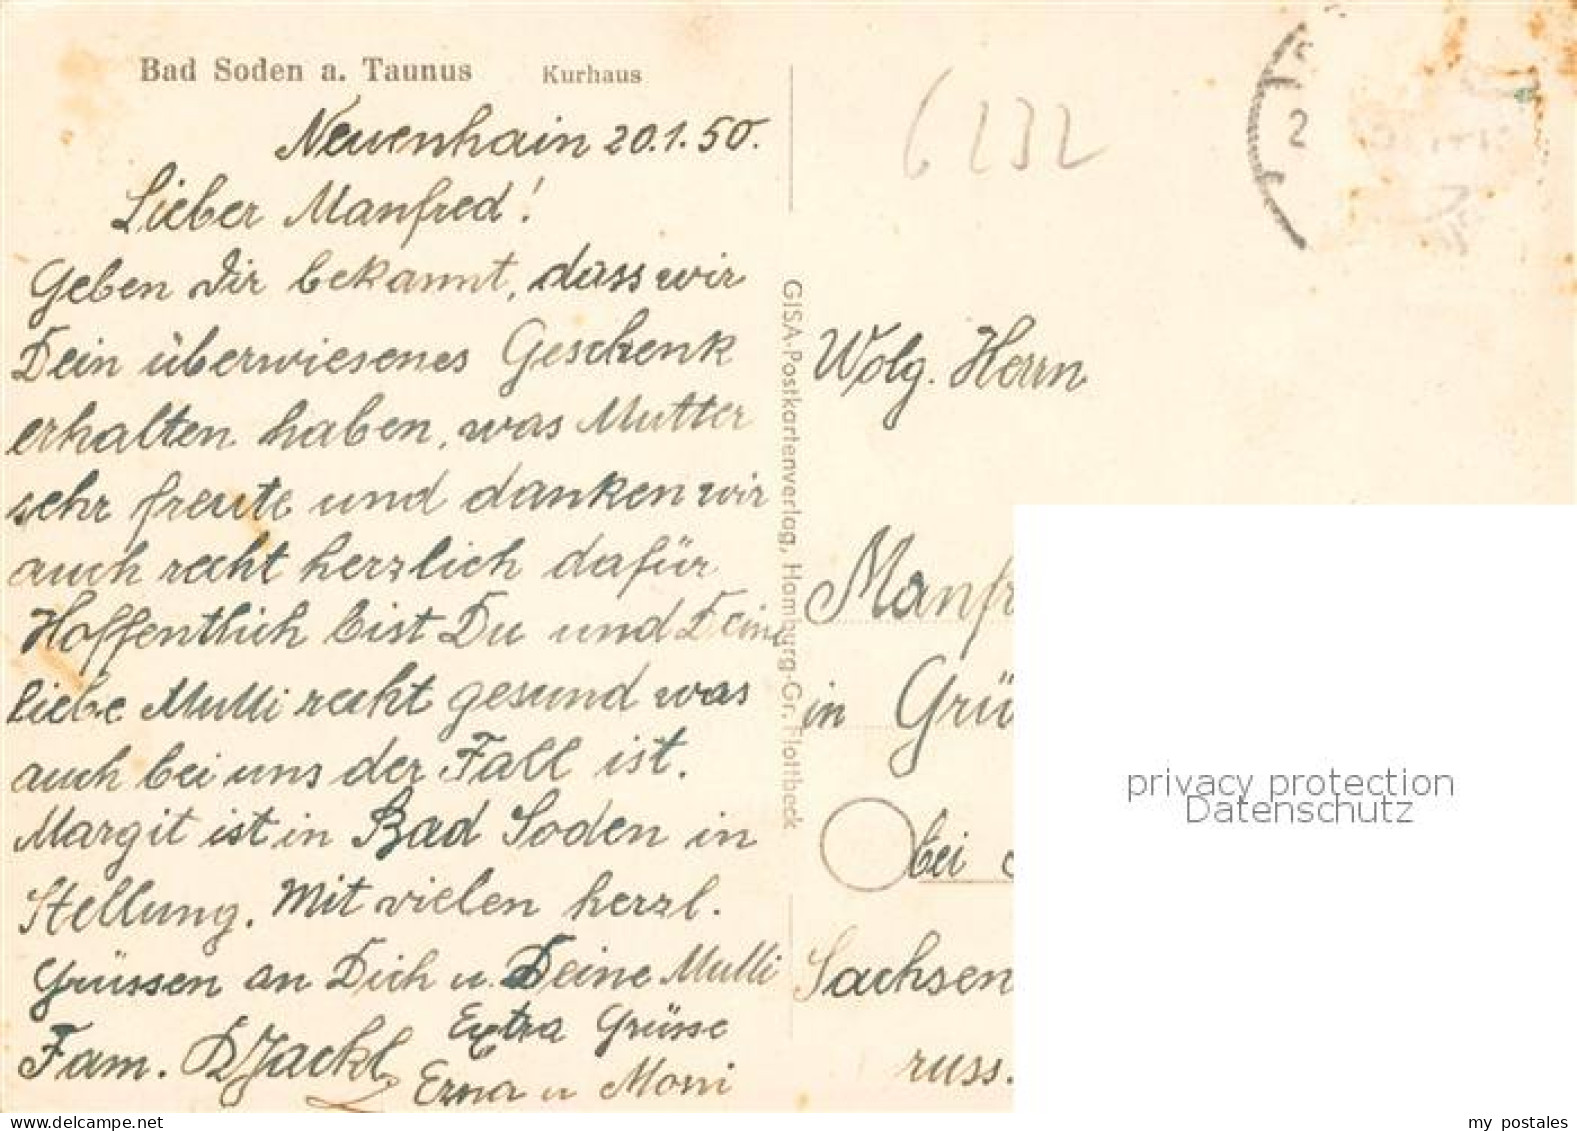 Bad Soden a. Taunus Kurhaus
Neuenhain 20.1.50.
Lieber Manfred!
Geben Dir bekannt, dass wir
Dein überwiesenes Geschenk
erhalten haben, was Mutter
sehr freute und danken wir
auch recht herzlich dafür
Hoffentlich bist Du und Deine
liebe Mutti recht gesund was
auch bei uns der Fall ist.
Margit ist in Bad Soden in
Stellung. Mit vielen herzl.
Grüssen an Dich u. Deine Mutti
Fam. Jackl
Extra Grüsse
Erna u Moni
GISA-Postkartenverlag, Hamburg-Gr. Flottbeck
6232
2
Wolg. Herrn
Manfr
in Grü
bei
Sachsen
russ.
privacy protection
Datenschutz
delcampe.net
my_postales